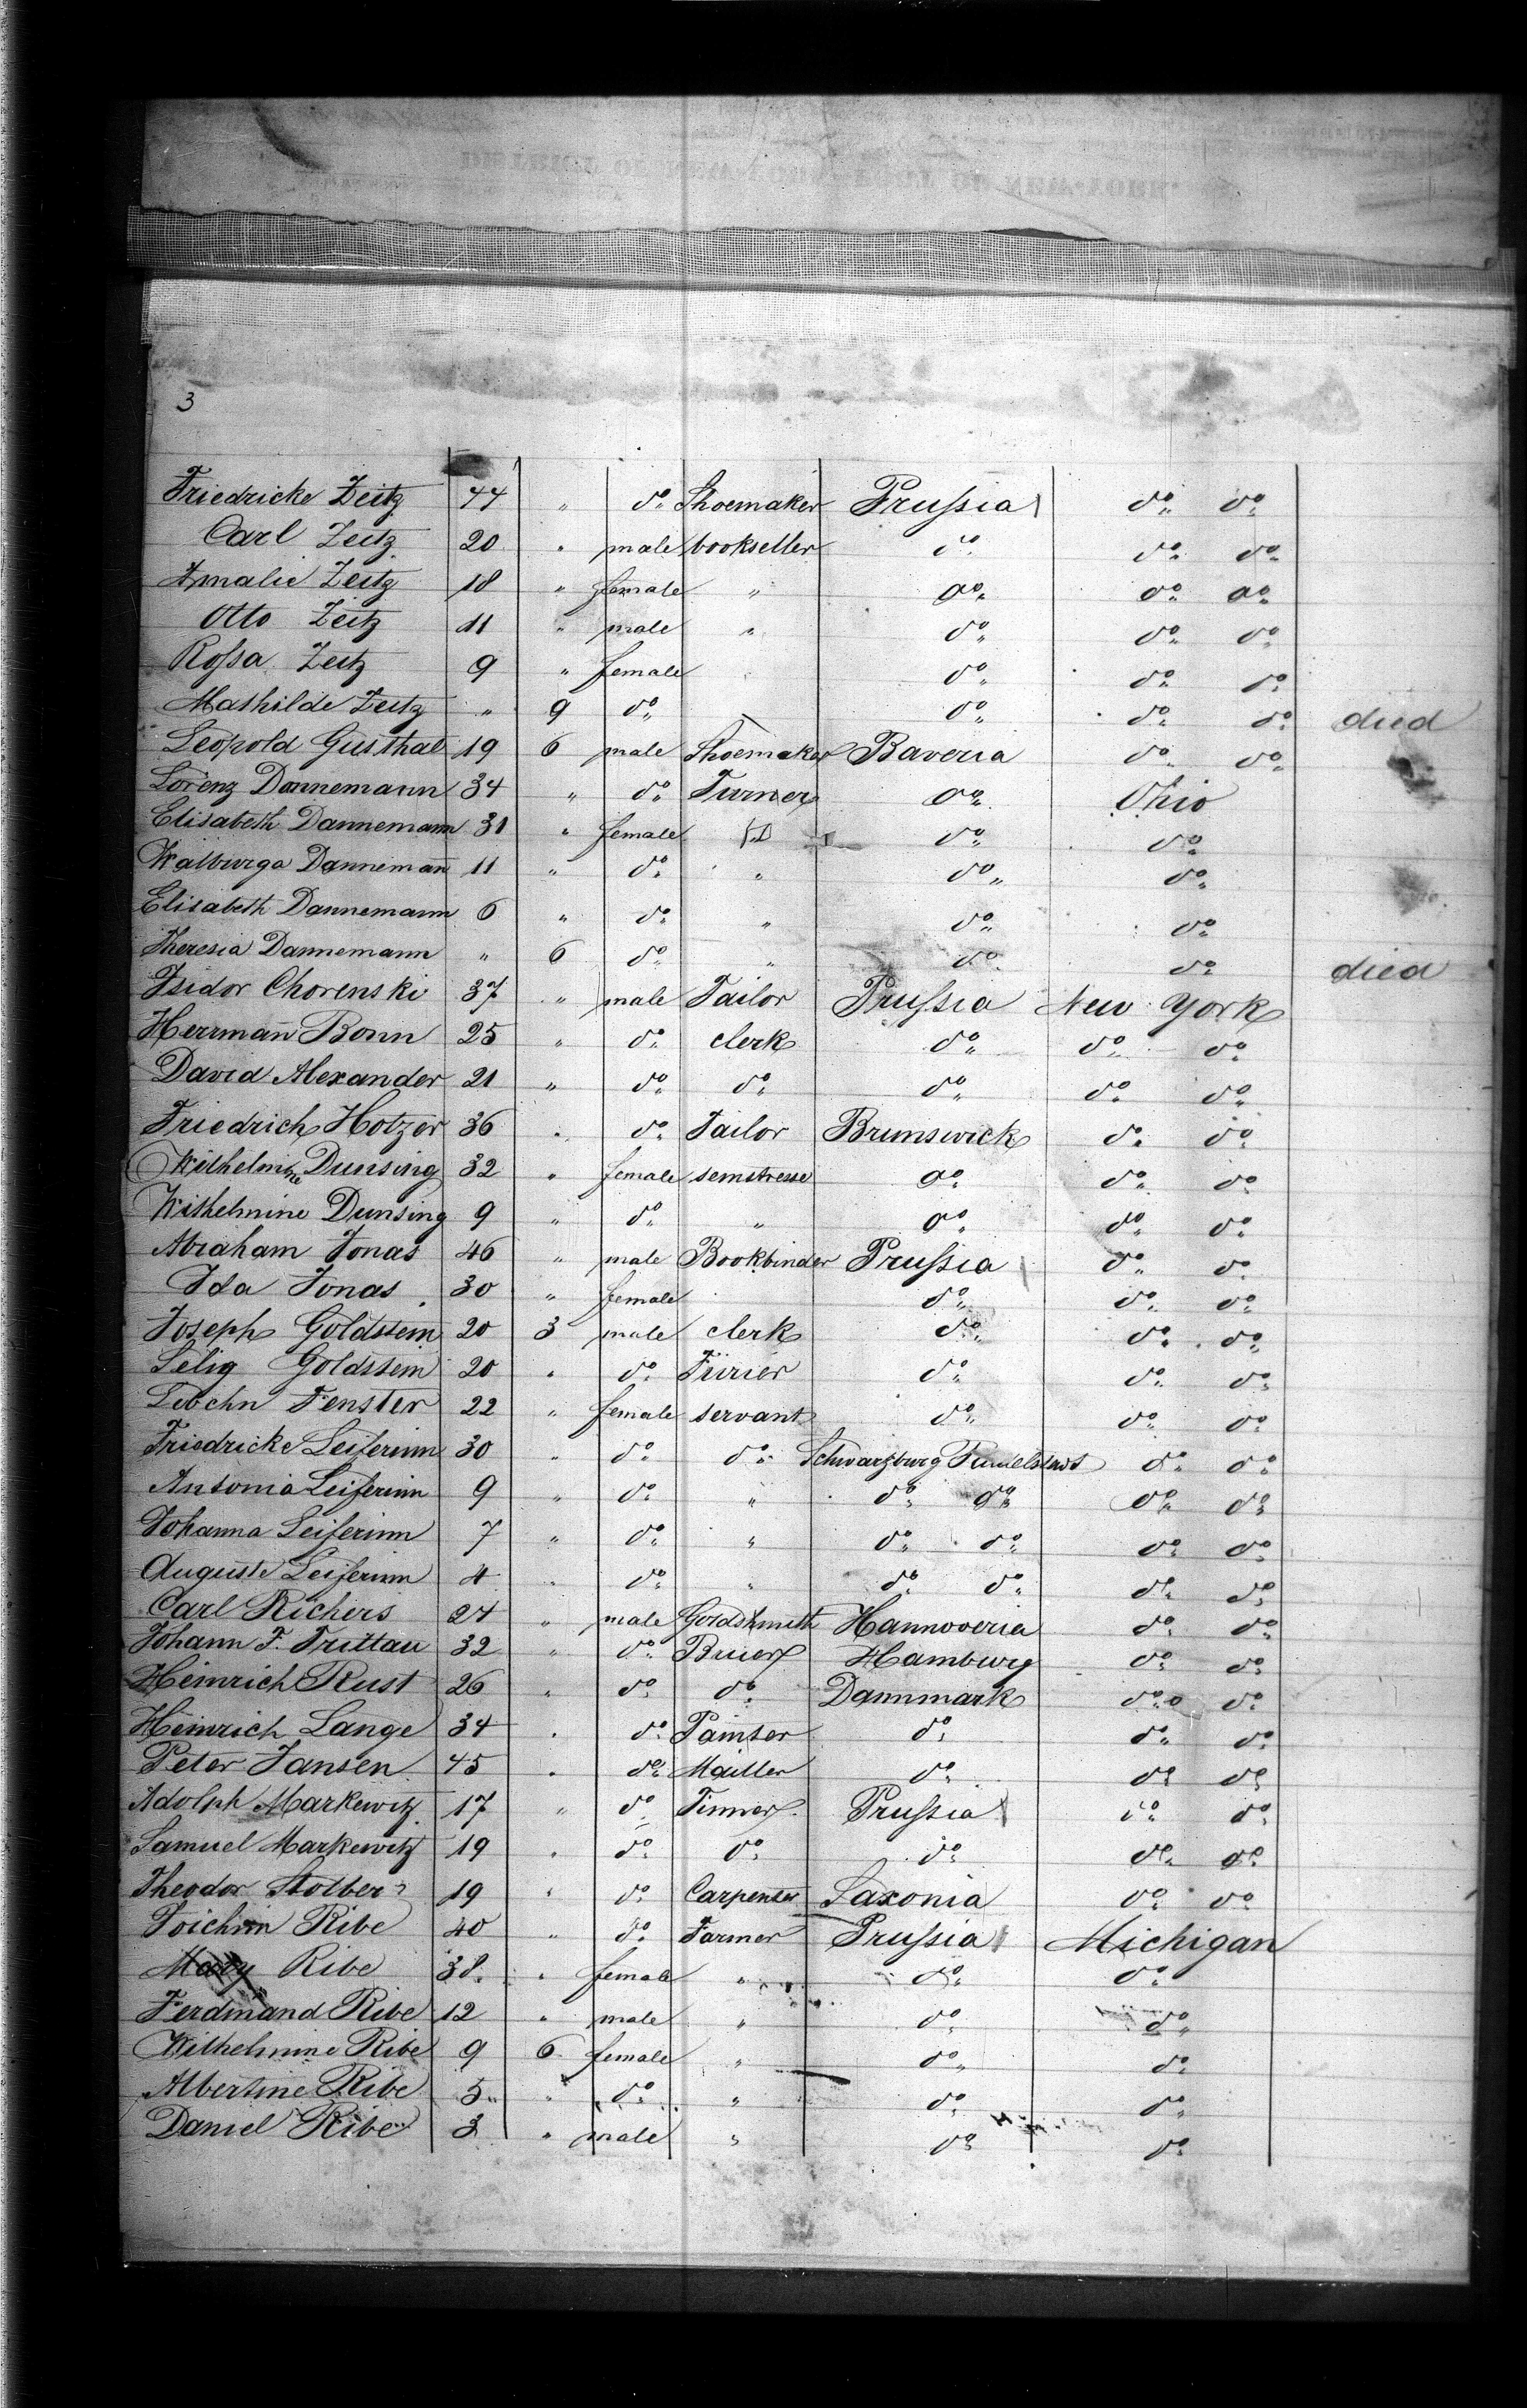 3
Friedricke Zeitz 44 " do Shoemaker Prussia do do
Carl Zeitz 20 " male bookseller do do do
Amalie Zeitz 18 " female " do do do
Otto Zeitz 11 " male " do do do
Rossa Zeitz 9 " female do do do
Mathilde Zeitz " 9 do do do do died
Leopold Gusthal 19 6 male Shoemaker Baveria do do
Lorenz Dannemann 34 " do Turner do Ohio
Elisabeth Dannemann 31 " female do do
Walburga Dannemann 11 " do " do do
Elisabeth Dannemann 6 " do " do do
Theresia Dannemann " 6 do " do do died
Isidor Chorenski 37 " male Tailor Prussia New York
Herrmann Bonn 25 " do clerk do do do
David Alexander 21 " do do do do do
Friedrich Hotzer 36 " do Tailor Brunswick do do
Wilhelmine Dunsing 32 " female semstresse do do do
Wilhelmine Dunsing 9 " do " do do do
Abraham Jonas 46 " male Bookbinder Prussia do do
Ida Jonas 30 " female do do do
Joseph Goldstein 20 3 male clerk do do do
Selig Goldstein 20 " do Fürier do do do
Fenster 22 " female servant do do do
Friedricke Leiferinn 30 " do do Schwarzburg do do
Antonia Leiferinn 9 " do " do do do do
Johanna Leiferinn 7 " do " do do do do
Auguste Leiferinn 4 " do " do do do do
Carl Richers 24 " male Goldshmith Hannoveria do do
Johann F. Trittau 32 " do Bruer Hamburg do do
Heinrich Rust 26 " do do Dannmark do do
Heinrich Lange 34 " do Painter do do do
Peter Jansen 45 " do Mailler do do do
Adolph Markewitz 17 " do Tinner Prussia do do
Samuel Markewitz 19 " do do do do do
Theodor Stolber 19 " do Carpenter Saxonia do do
Joichim Ribe 40 " do Farmer Prussia Michigan
Mary Ribe 38 " female " do do
Ferdinand Ribe 12 " male " do do
Wilhelmine Ribe 9 6 female " do do
Albertine Ribe 5 " do " do do
Daniel Ribe 3 " male " do do